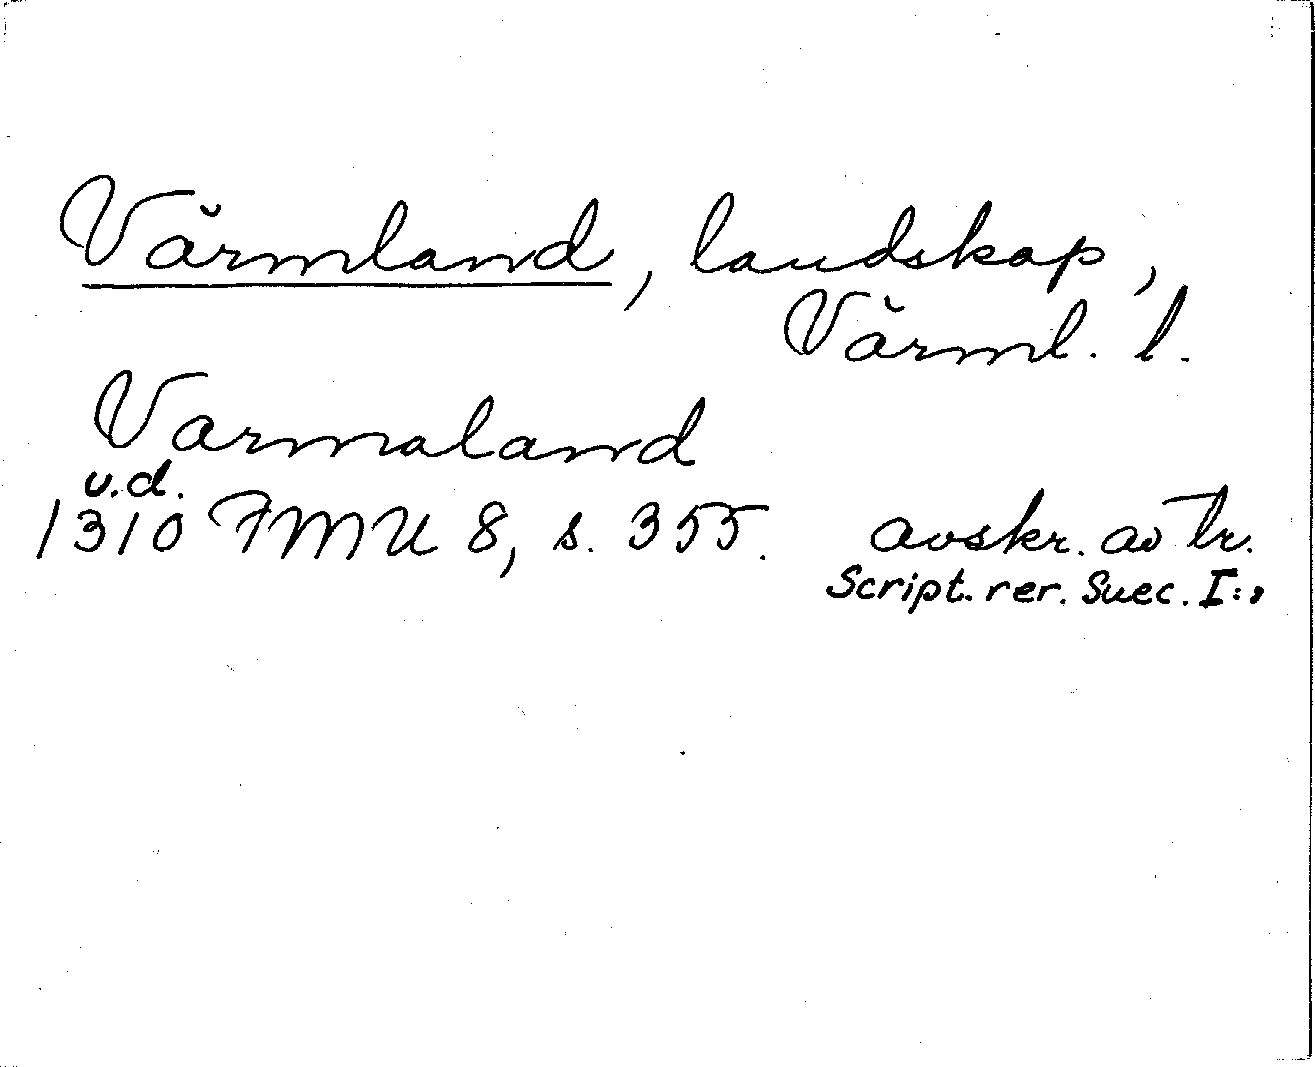 Värmland, landskap,
Värml. l.
Varmaland
u.d.
1310 FMU 8, s. 355. avskr. av tr.
Script. rer. Suec. I:2